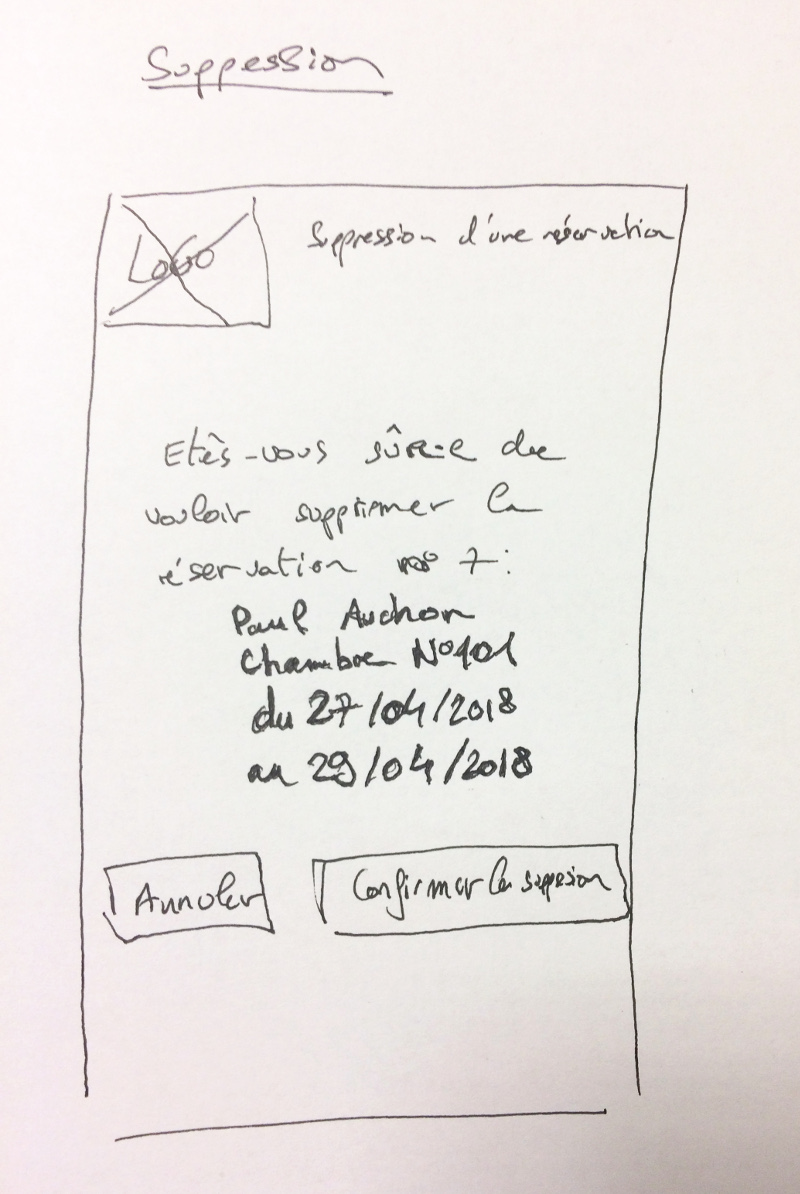 Suppession
LOGO
Suppression d'une réservation
Etês-vous sûr-e de
vouloir supprimer la
réservation n° 7:
Paul Auchon
Chambre N°101
du 27/04/2018
au 29/04/2018
Annuler
Confirmer la suppesion